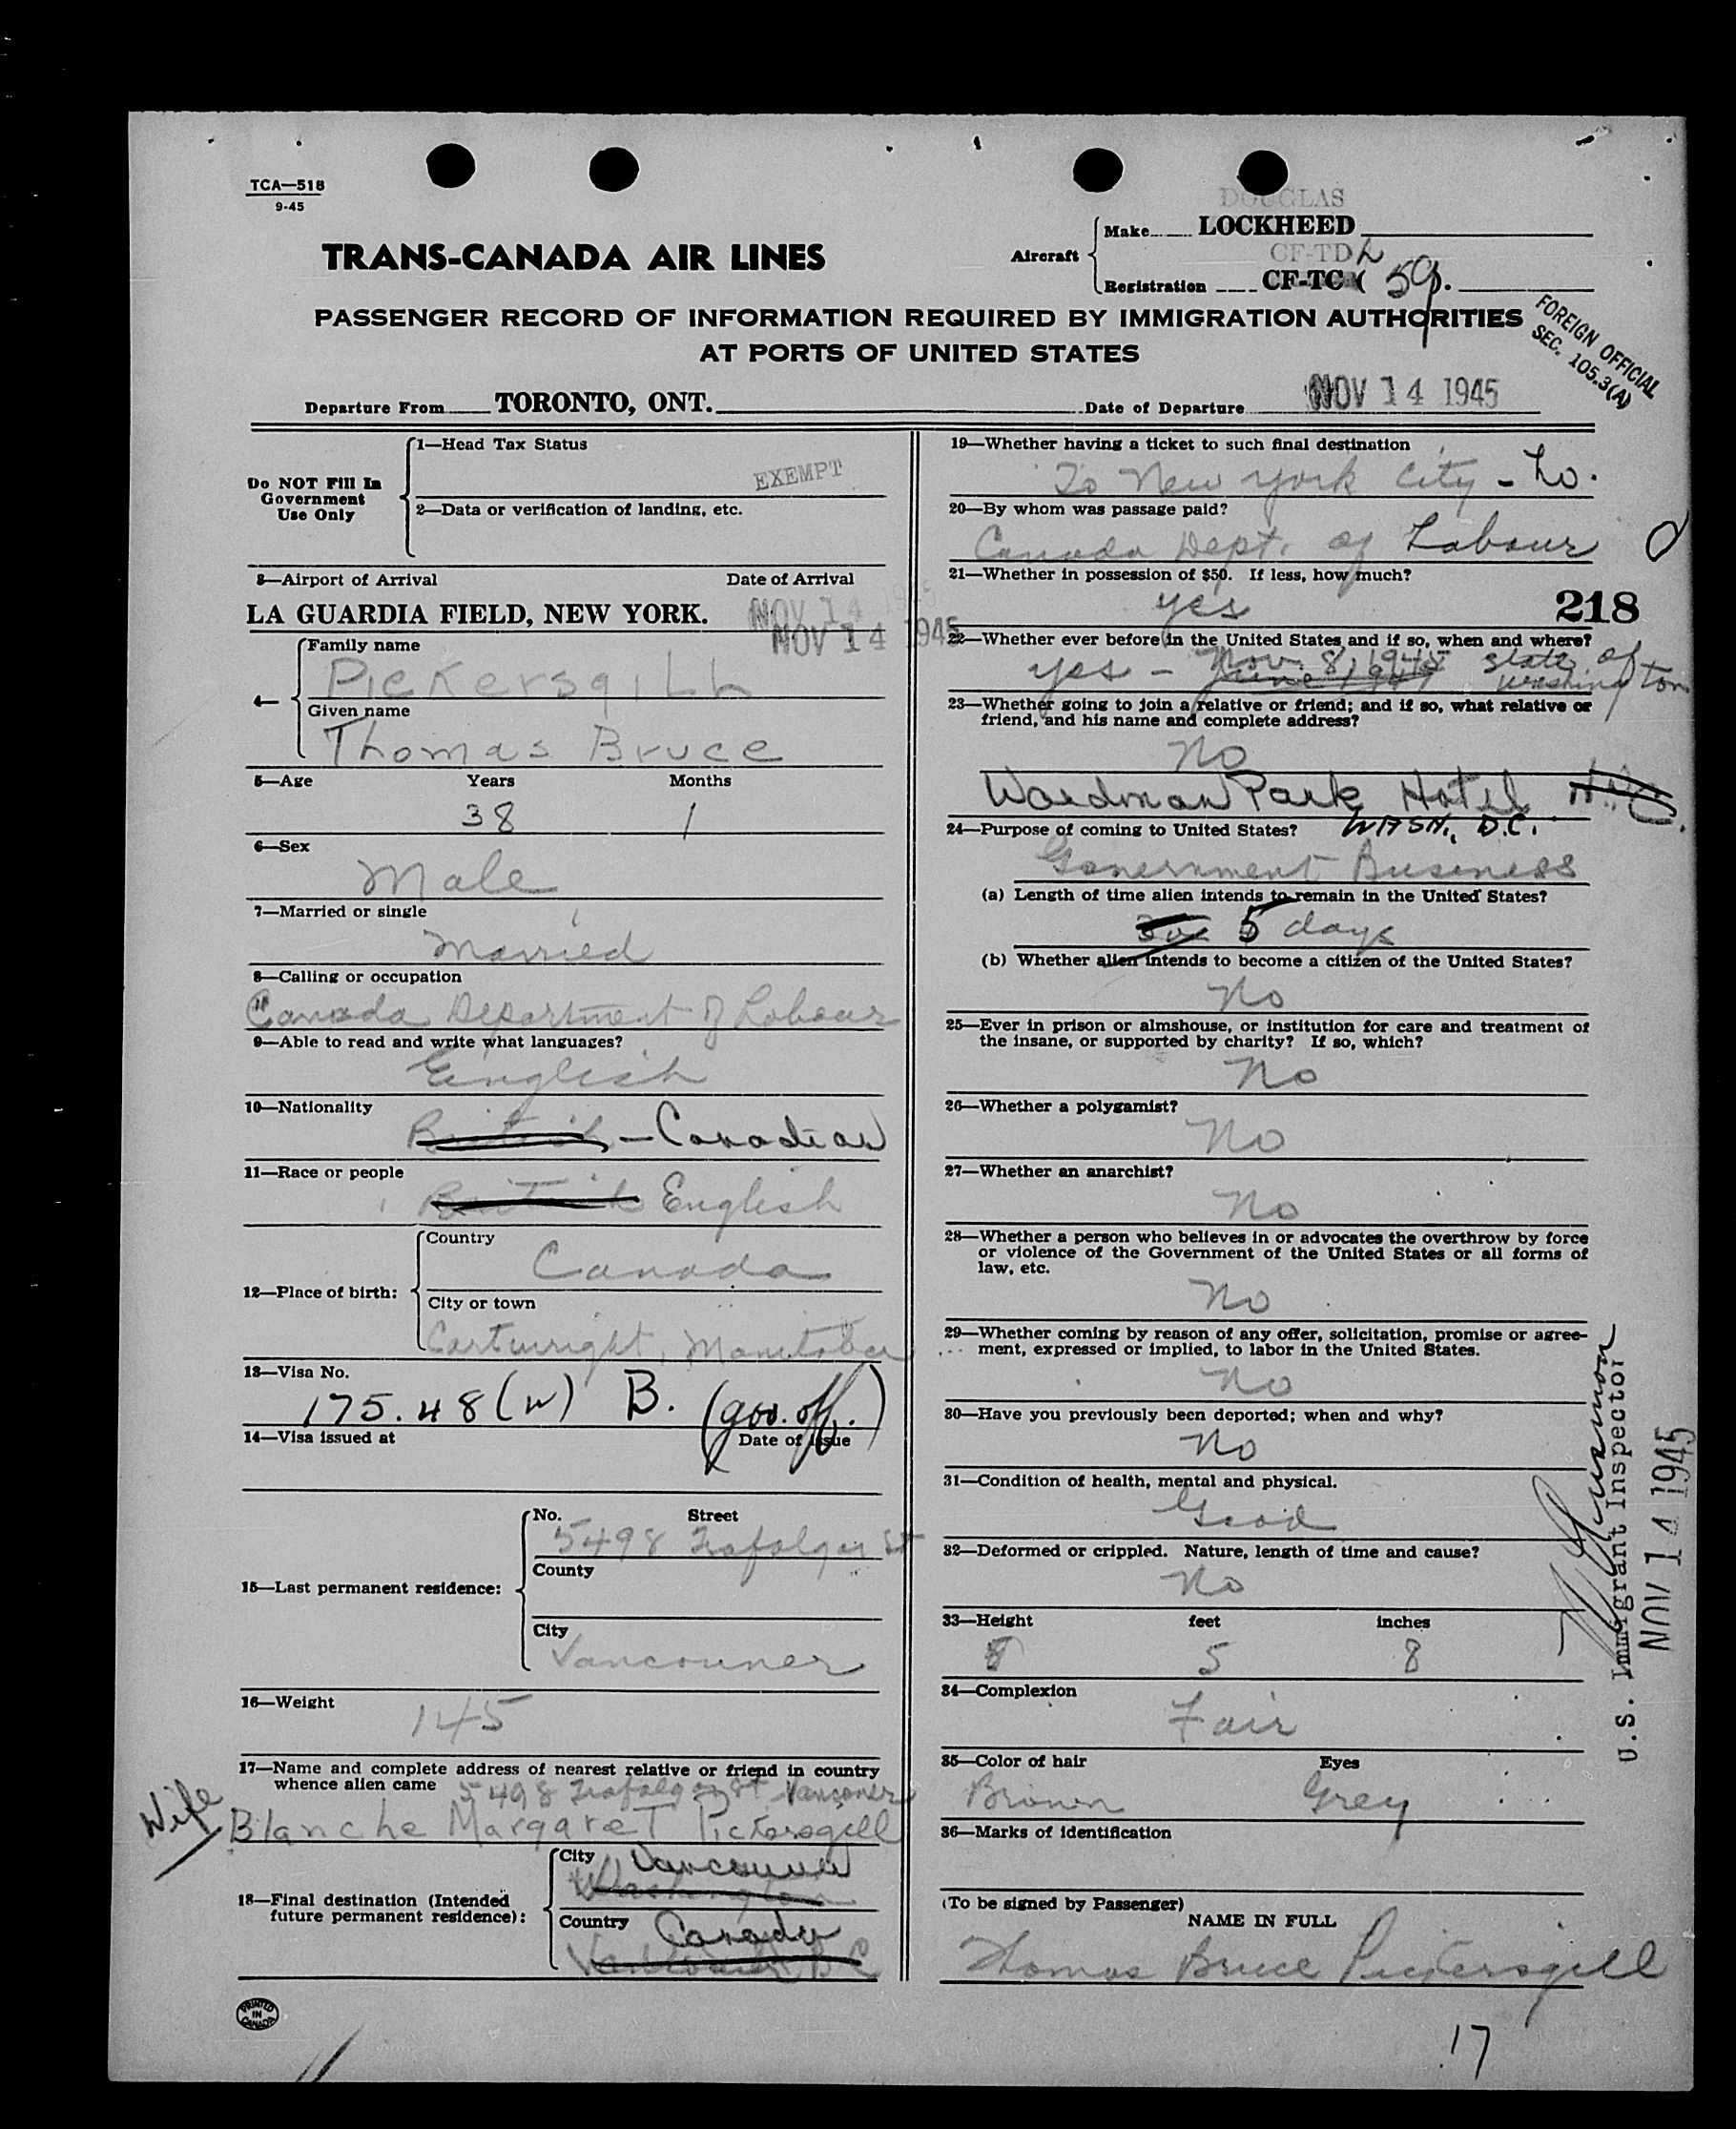 TCA—518
9-45
DOUGLAS
Make LOCKHEED
TRANS-CANADA AIR LINES
Aircraft
CF-TD L
Registration CF-TC ( 59).
PASSENGER RECORD OF INFORMATION REQUIRED BY IMMIGRATION AUTHORITIES
AT PORTS OF UNITED STATES
FOREIGN OFFICIAL
SEC. 105.3(A)
Departure From TORONTO, ONT. Date of Departure NOV 14 1945
Do NOT Fill In
Government
Use Only
1—Head Tax Status
EXEMPT
2—Data or verification of landing, etc.
3—Airport of Arrival Date of Arrival
LA GUARDIA FIELD, NEW YORK. NOV 14 1945
NOV 14 1945
4—
Family name
Pickersgill
Given name
Thomas Bruce
5—Age Years Months
38 1
6—Sex
Male
7—Married or single
Married
8—Calling or occupation
Canada Department of Labour
9—Able to read and write what languages?
English
10—Nationality
British — Canadian
11—Race or people
British English
12—Place of birth:
Country
Canada
City or town
Cartwright, Manitoba
13—Visa No.
175.48 (w) B. (gov. off.)
14—Visa issued at Date of issue
15—Last permanent residence:
No. Street
5498 Trafalgar St
County
City
Vancouver
16—Weight
145
17—Name and complete address of nearest relative or friend in country
whence alien came 5498 Trafalgar St Vancouver
Wife
Blanche Margaret Pickersgill
18—Final destination (Intended
future permanent residence):
City Vancouver
Washington
Country Canada
Vancouver B C
PRINTED
IN
CANADA
19—Whether having a ticket to such final destination
To New York City -
20—By whom was passage paid?
Canada Dept. of Labour
21—Whether in possession of $50. If less, how much?
yes
218
22—Whether ever before in the United States and if so, when and where?
yes - Nov. 8, 1945 State of
Washington
23—Whether going to join a relative or friend; and if so, what relative or
friend, and his name and complete address?
No
Wardman Park Hotel
24—Purpose of coming to United States? WASH., D.C.
Government Business
(a) Length of time alien intends to remain in the United States?
5 days
(b) Whether alien intends to become a citizen of the United States?
No
25—Ever in prison or almshouse, or institution for care and treatment of
the insane, or supported by charity? If so, which?
No
26—Whether a polygamist?
No
27—Whether an anarchist?
No
28—Whether a person who believes in or advocates the overthrow by force
or violence of the Government of the United States or all forms of
law, etc.
No
29—Whether coming by reason of any offer, solicitation, promise or agree-
ment, expressed or implied, to labor in the United States.
No
30—Have you previously been deported; when and why?
No
31—Condition of health, mental and physical.
Good
32—Deformed or crippled. Nature, length of time and cause?
No
33—Height feet inches
5 8
34—Complexion
Fair
35—Color of hair Eyes
Brown Grey
36—Marks of identification
(To be signed by Passenger)
NAME IN FULL
Thomas Bruce Pickersgill
U.S. Immigrant Inspector
NOV 14 1945
17